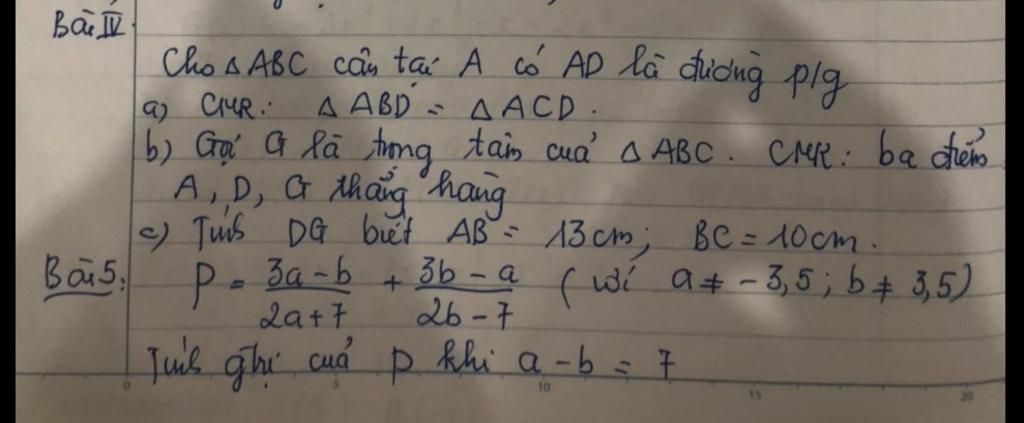 Bài IV.
Cho △ ABC cân tại A có AD là đường p/g
a) CMR: △ ABD = △ ACD.
b) Gọi G là trọng tâm của △ ABC. CMR: ba điểm
A, D, G thẳng hàng
c) Tính DG biết AB = 13cm; BC = 10cm.
Bài 5: P = \frac{3a-b}{2a+7} + \frac{3b-a}{2b-7} (với a ≠ -3,5; b ≠ 3,5)
Tính gtrị của P khi a-b = 7
0 5 10 15 20